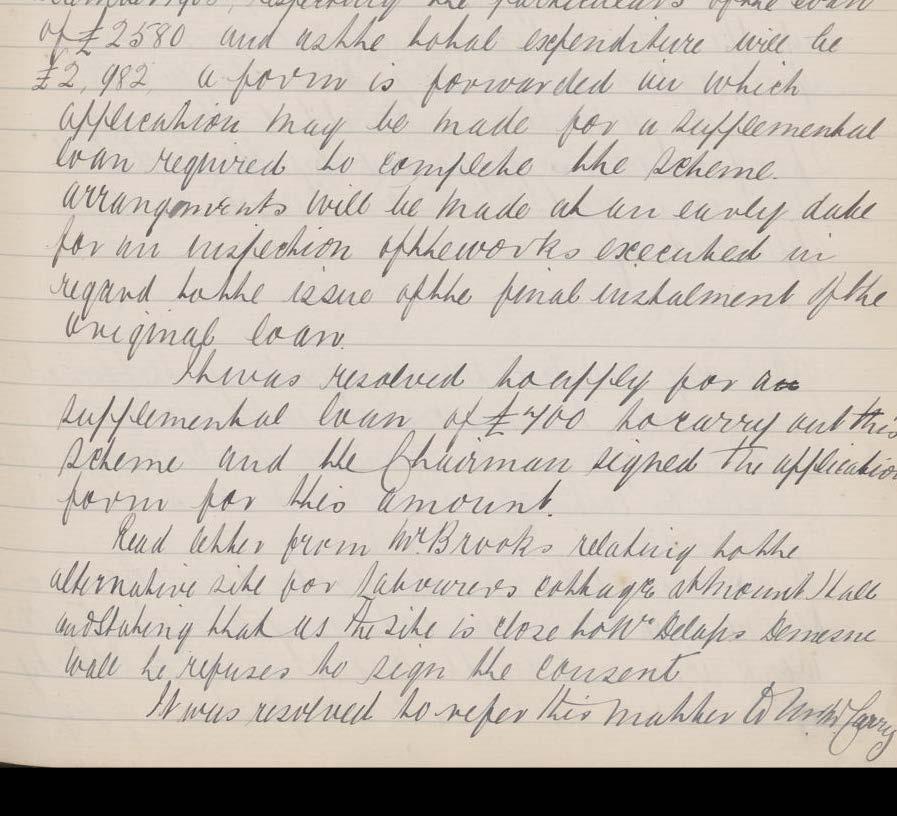 respecting the particulars of the loan
of £2580 and as the total expenditure will be
£2,982 a form is forwarded in which
application may be made for a supplemental
loan required to complete the scheme.
arrangements will be made at an early date
for an inspection of the works executed in
regard to the issue of the final instalment of the
original loan.
It was resolved to apply for a
supplemental loan of £400 to carry out this
scheme and the Chairman signed the application
form for this amount.
Read letter from Mr. Brooks relating to the
alternative site for Labourers cottage at Mount Hall
and stating that as the site is close to Mr Delaps Demesne
wall he refuses to sign the consent
It was resolved to refer this matter to